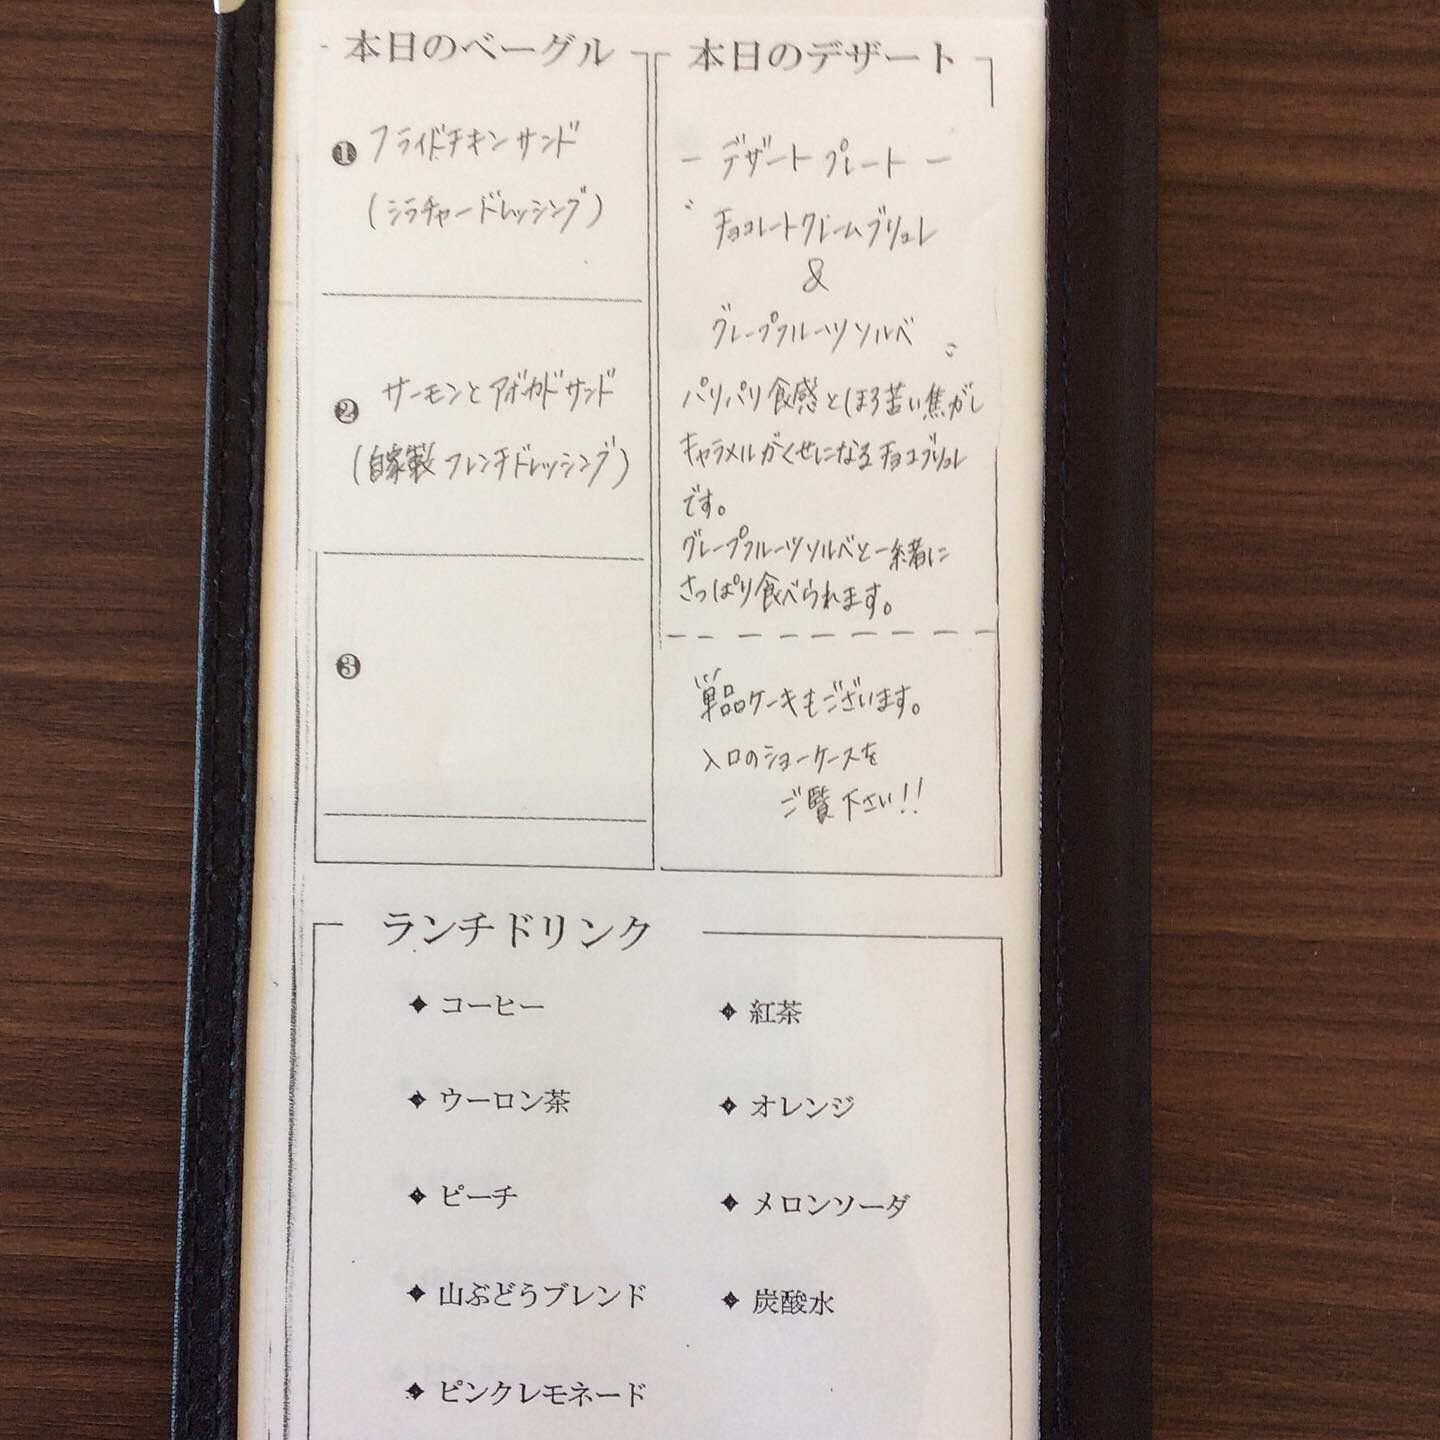 本日のベーグル
❶ フライドチキンサンド
(シラチャードレッシング)
❷ サーモンとアボカドサンド
(自家製フレンチドレッシング)
❸
本日のデザート
ー デザートプレート ー
チョコレートクレームブリュレ
&
グレープフルーツソルベ
パリパリ食感とほろ苦い焦がし
キャラメルがくせになるチョコブリュレ
です。
グレープフルーツソルベと一緒に
さっぱり食べられます。
単品ケーキもございます。
入口のショーケースを
ご覧下さい!!
ランチドリンク
◆ コーヒー
◆ 紅茶
◆ ウーロン茶
◆ オレンジ
◆ ピーチ
◆ メロンソーダ
◆ 山ぶどうブレンド
◆ 炭酸水
◆ ピンクレモネード